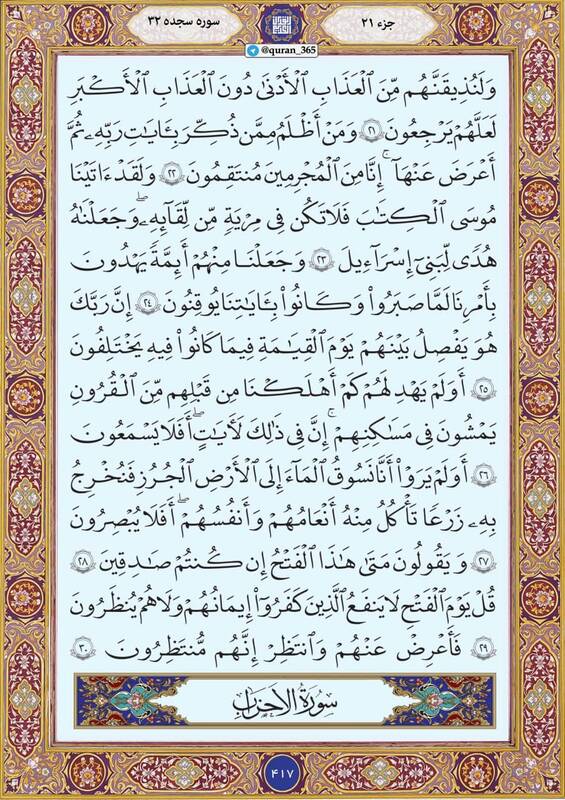 سوره سجده ۳۲
جزء ۲۱
@quran_365
وَلَنُذِيقَنَّهُم مِّنَ ٱلْعَذَابِ ٱلْأَدْنَىٰ دُونَ ٱلْعَذَابِ ٱلْأَكْبَرِ
لَعَلَّهُمْ يَرْجِعُونَ ۝٢١ وَمَنْ أَظْلَمُ مِمَّن ذُكِّرَ بِـَٔايَـٰتِ رَبِّهِۦ ثُمَّ
أَعْرَضَ عَنْهَآ ۚ إِنَّا مِنَ ٱلْمُجْرِمِينَ مُنتَقِمُونَ ۝٢٢ وَلَقَدْ ءَاتَيْنَا
مُوسَى ٱلْكِتَـٰبَ فَلَا تَكُن فِى مِرْيَةٍ مِّن لِّقَآئِهِۦ ۖ وَجَعَلْنَـٰهُ
هُدًى لِّبَنِىٓ إِسْرَٰٓءِيلَ ۝٢٣ وَجَعَلْنَا مِنْهُمْ أَئِمَّةً يَهْدُونَ
بِأَمْرِنَا لَمَّا صَبَرُوا۟ ۖ وَكَانُوا۟ بِـَٔايَـٰتِنَا يُوقِنُونَ ۝٢٤ إِنَّ رَبَّكَ
هُوَ يَفْصِلُ بَيْنَهُمْ يَوْمَ ٱلْقِيَـٰمَةِ فِيمَا كَانُوا۟ فِيهِ يَخْتَلِفُونَ
۝٢٥ أَوَلَمْ يَهْدِ لَهُمْ كَمْ أَهْلَكْنَا مِن قَبْلِهِم مِّنَ ٱلْقُرُونِ
يَمْشُونَ فِى مَسَـٰكِنِهِمْ ۚ إِنَّ فِى ذَٰلِكَ لَـَٔايَـٰتٍ ۖ أَفَلَا يَسْمَعُونَ
۝٢٦ أَوَلَمْ يَرَوْا۟ أَنَّا نَسُوقُ ٱلْمَآءَ إِلَى ٱلْأَرْضِ ٱلْجُرُزِ فَنُخْرِجُ
بِهِۦ زَرْعًا تَأْكُلُ مِنْهُ أَنْعَـٰمُهُمْ وَأَنفُسُهُمْ ۖ أَفَلَا يُبْصِرُونَ
۝٢٧ وَيَقُولُونَ مَتَىٰ هَـٰذَا ٱلْفَتْحُ إِن كُنتُمْ صَـٰدِقِينَ ۝٢٨
قُلْ يَوْمَ ٱلْفَتْحِ لَا يَنفَعُ ٱلَّذِينَ كَفَرُوٓا۟ إِيمَـٰنُهُمْ وَلَا هُمْ يُنظَرُونَ
۝٢٩ فَأَعْرِضْ عَنْهُمْ وَٱنتَظِرْ إِنَّهُم مُّنتَظِرُونَ ۝٣٠
سورة الاحزاب
۴۱۷